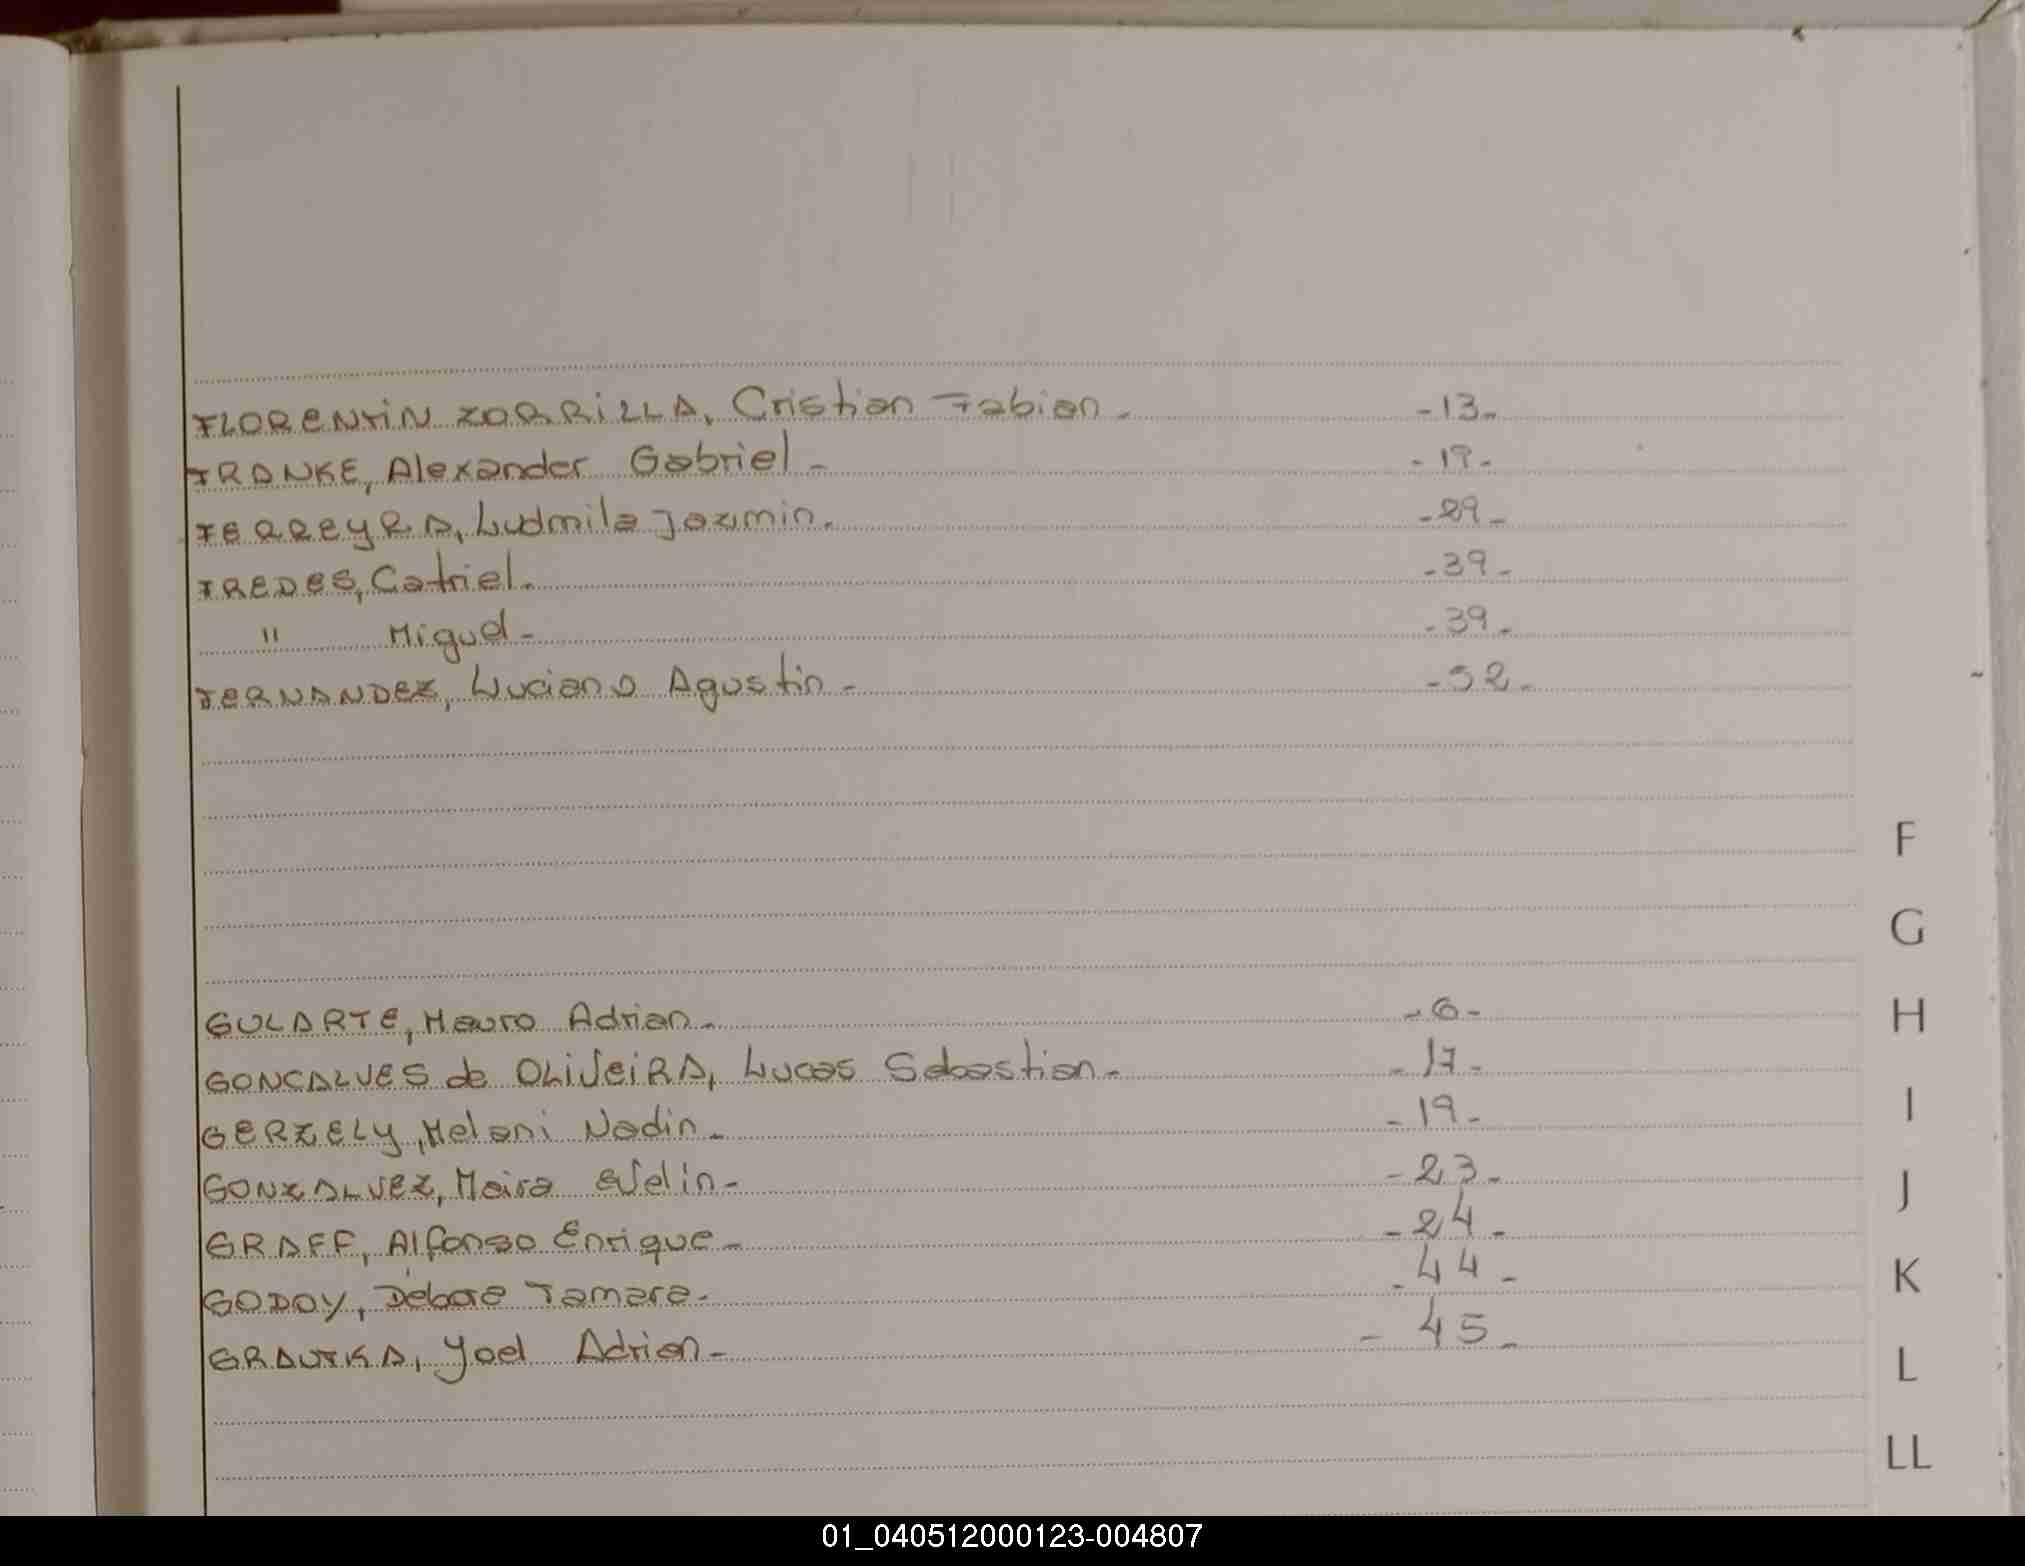 FLORENTIN ZORRILLA, Cristian Fabian - -13-
FRANKE, Alexander Gabriel - -19-
FERREYRA, Ludmila Jazmin. -29-
FREDES, Catriel. -39-
" Miguel - -39-
FERNANDEZ, Luciano Agustin - -52-
F
G
GULARTE, Mauro Adrian - -6-
H
GONCALVES de OLIVEIRA, Lucas Sebastian - -17-
GERZELY, Melani Nadin - -19-
I
GONZALVEZ, Maira Evelin - -23-
J
GRAFF, Alfonso Enrique - -24-
K
GODOY, Débora Tamara - -44-
GRAUTKA, Yoel Adrian - -45-
L
LL
01_040512000123-004807